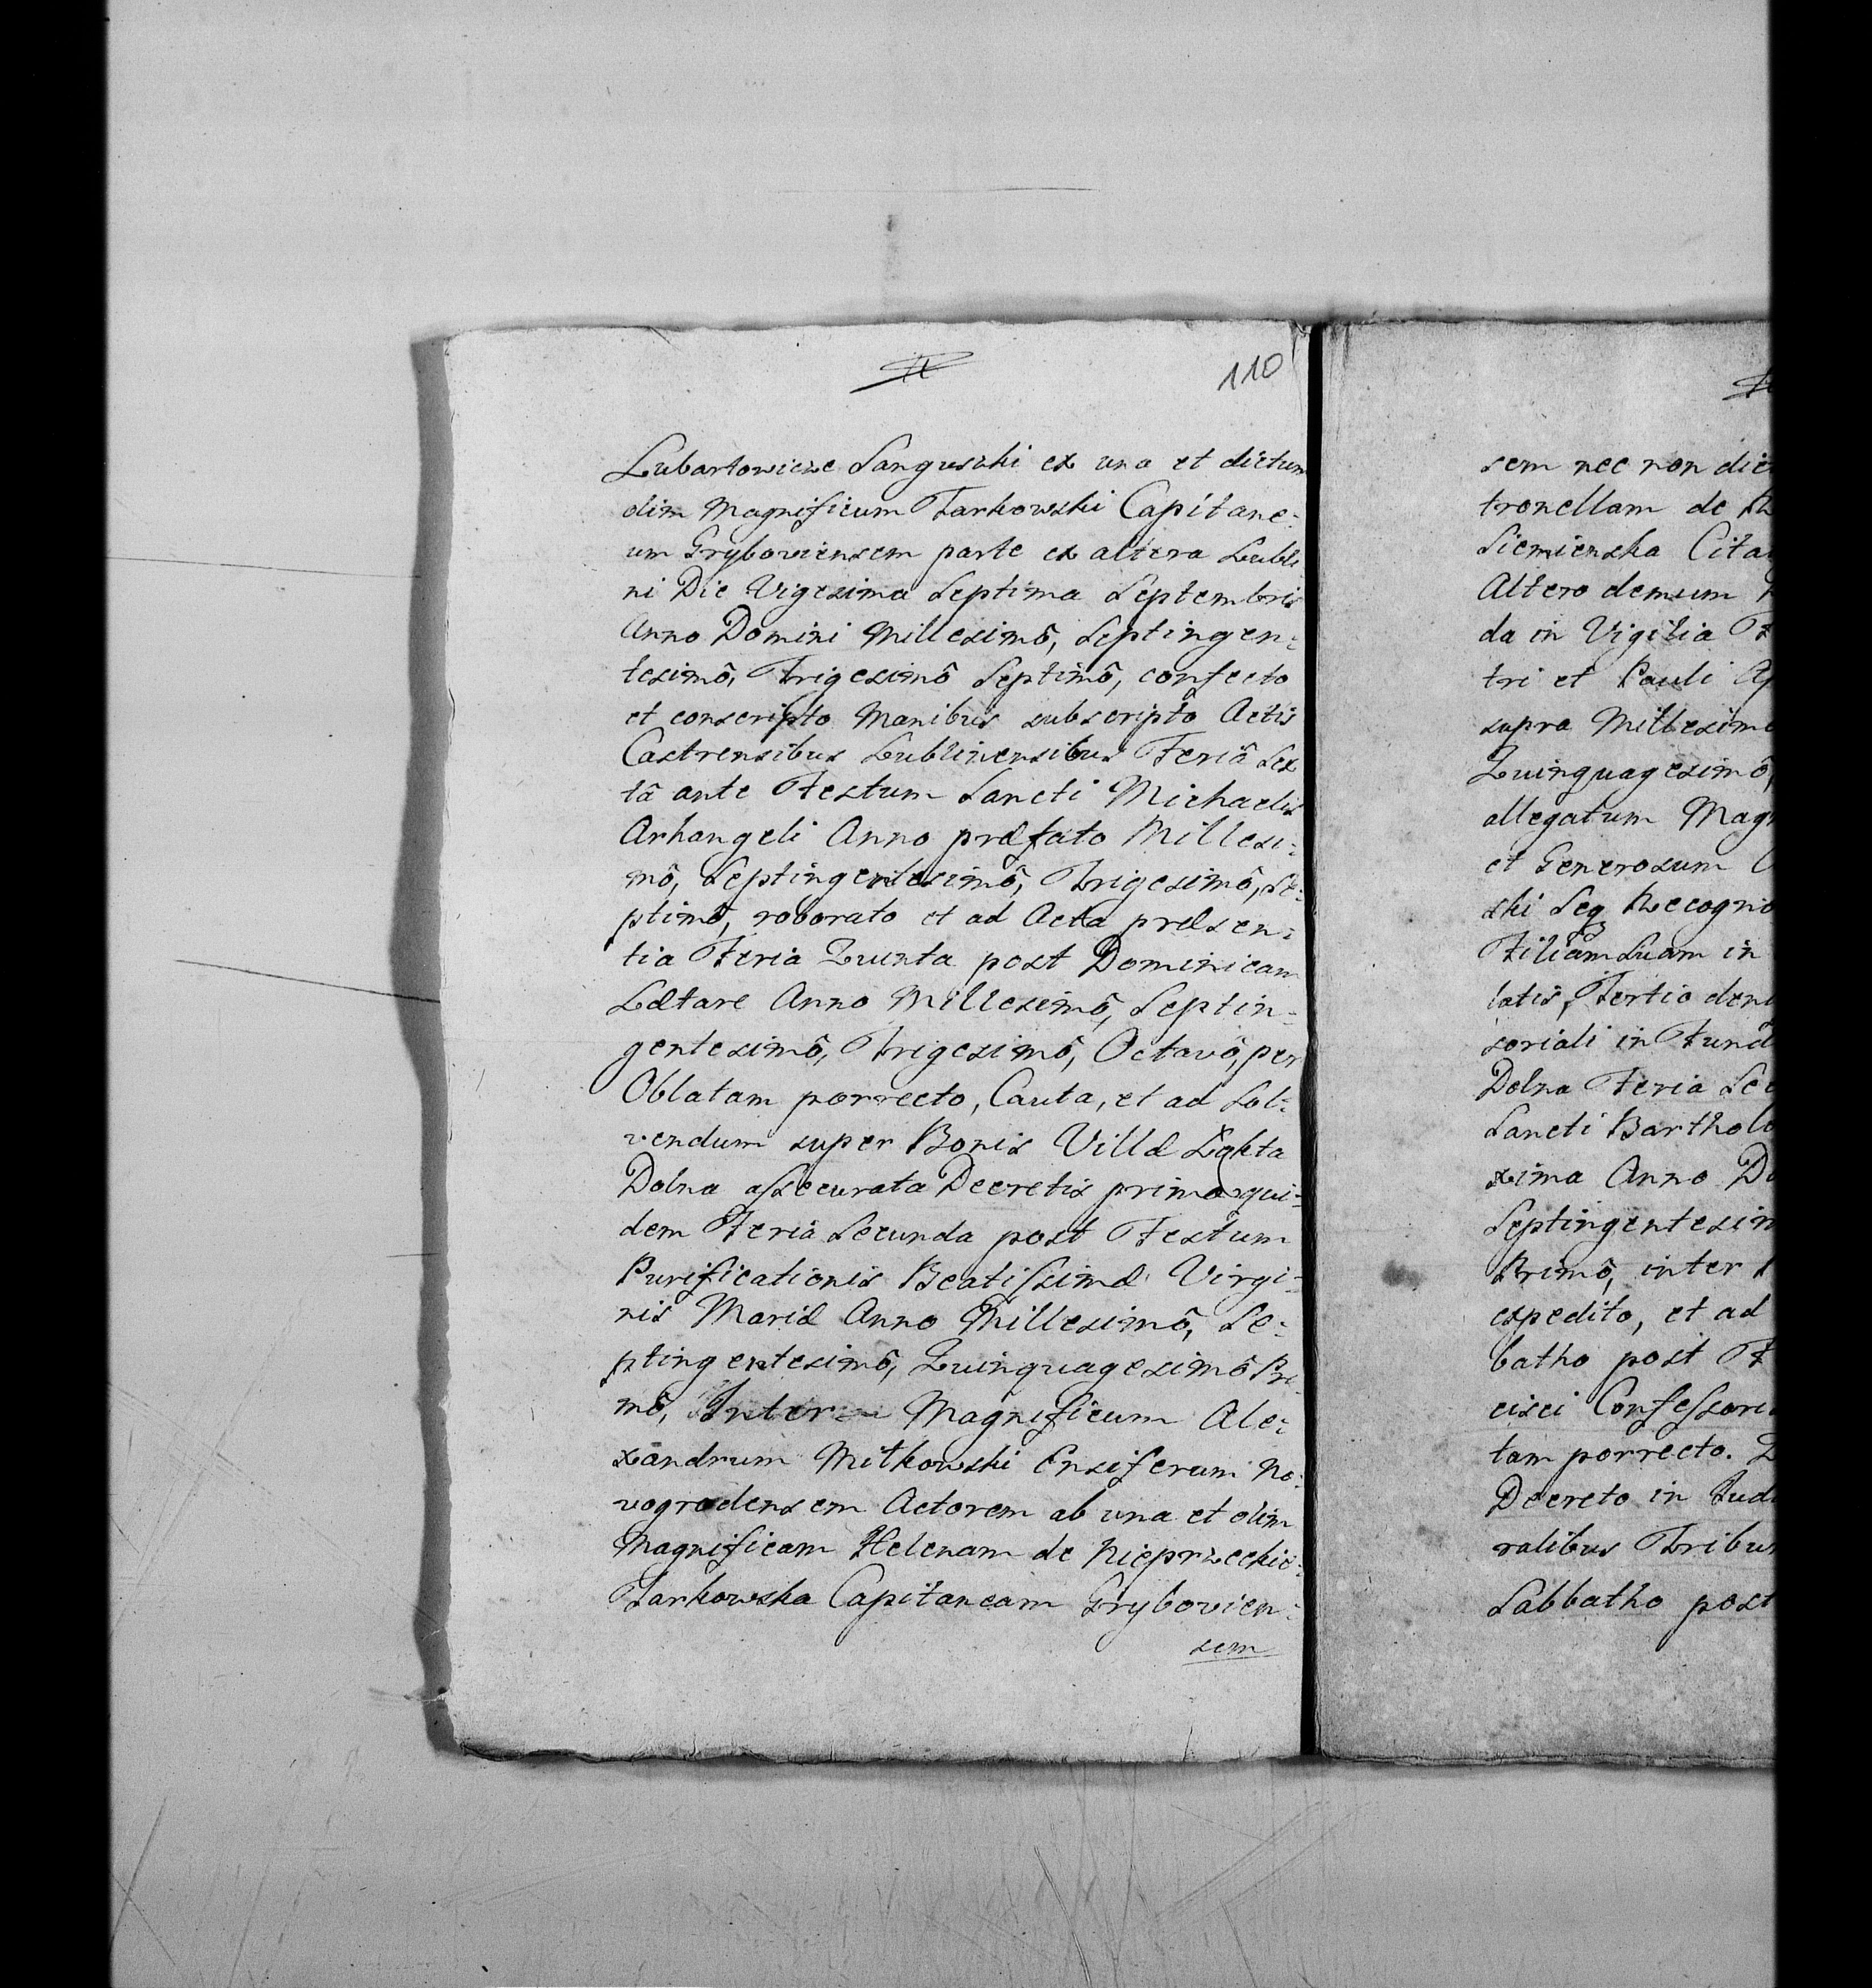 110
Lubartowicze Sanguszki ex una et dictum
olim Magnificum Tarkowski Capitane:
um Gryboviensem parte ex altera Lubli
ni Die Vigesima Septima Septembris
Anno Domini Millesimô, Septingen:
tesimô, Trigesimô Septimô, confecto
et conscripto Manibus subscripto Actis
Castrensibus Lublinensibus Feriâ Sex
tâ ante Festum Sancti Michaelis
Arhangeli Anno præfato Millesi:
mô, Septingentesimô, Trigesimô, Se:
ptimô, roborato et ad Acta præsen:
tia Feria Quinta post Dominicam
Lætare Anno Millesimô, Septin:
gentesimô, Trigesimô, Octavô, per
Oblatam porrecto, Cauta, et ad Sol:
vendum super Bonis Villæ
Dolna assecurata Decretis primo qui:
dem Feria Secunda post Festum
Purificationis Beatissimæ Virgi:
nis Mariæ Anno Millesimô, Se:
ptingentesimô, Quinquagesimô Pri
mô, Inter Magnificum Ale:
xandrum Mitkowski Ensiferum No:
vogrodensem Actorem ab una et olim
Magnificam Helenam de Nieprzeckie:
Tarkowska Capitaneam Grybovien:
sem
sem nec non dic
tronellam de
Siemienska Cita
Altero demum
da in Vigilia F
tri et Pauli Ap
supra Millesimo
Quinquagesimô,
allegatum Mag
et Generosum
ski Seq Recogno
Filiam Suam in
latis, Tertio
soriali in Fund
Dolna Feria Sec
Sancti Bartholo
xima Anno Do
Septingentesim
Primô, inter
expedito, et ad
batho post F
cisci Confessori
tam porrecto.
Decreto in Judi
ralibus Tribun
Sabbatho post